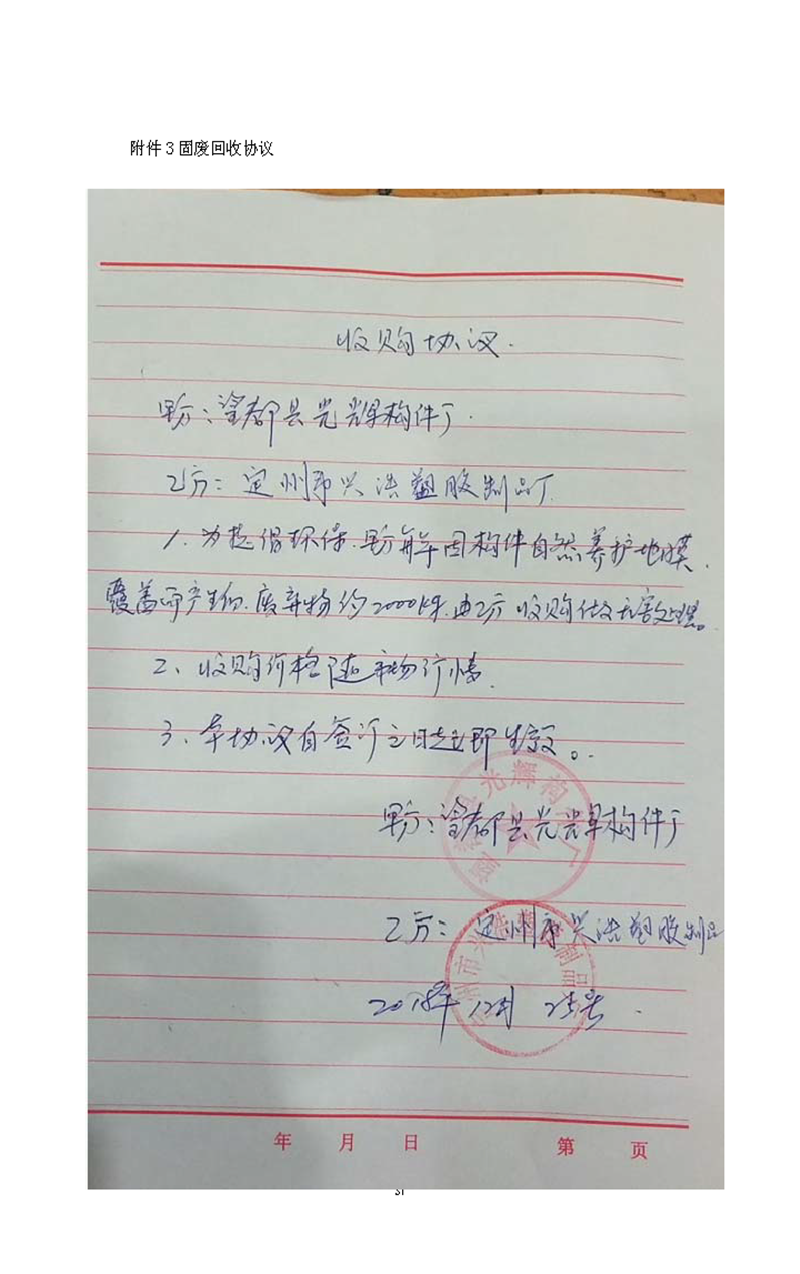 附件3固废回收协议
收购协议.
甲方:望都县光辉构件厂.
乙方:定州市兴浩塑胶制品厂
1.为提倡环保.甲方每年因构件自然养护地膜
覆盖而产生的废弃物约2000kg.由乙方收购做无害处理。
2、收购价格随市场行情.
3、本协议自签订之日起立即生效。
甲方:望都县光辉构件厂
乙方:定州市兴浩塑胶制品
2018年12月25号.
年 月 日 第 页
31